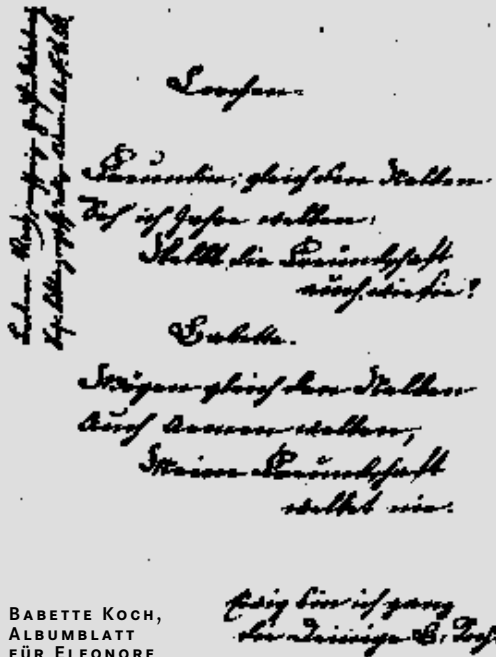 Lorchen.
Freundin, gleich den Nelken
Seh ich Jahre welken:
Welkt die Freundschaft
auch wie sie?
Babette.
Mögen gleich den Nelken
Auch welken,
Meine Freundschaft
welket nie.
Ewig bin ich ganz
die Deinige B. Koch
BABETTE KOCH,
ALBUMBLATT
FÜR ELEONORE